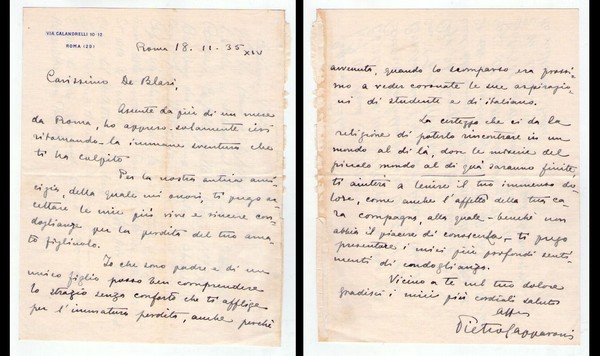 VIA CALANDRELLI 10-12
ROMA (29)
Roma 18.11.35 XIV
Carissimo De Blasi,
Assente da più di un mese
da Roma, ho appreso solamente ieri
ritornando la immane sventura che
ti ha colpito.
Per la nostra antica ami-
cizia, della quale mi onori, ti prego ac-
cettare le mie più vive e sincere con-
doglianze per la perdita del tuo ama-
to figliuolo.
Io che sono padre e di un
unico figlio posso ben comprendere
lo strazio senza conforto che ti affligge
per l'immatura perdita, anche perchè
avvenuta, quando lo scomparso era prossi-
mo a veder coronate le sue aspirazio-
ni di studente e di italiano.
La certezza che ci dà la
religione di poterlo rincontrare in un
mondo al di là, dove le miserie del
piccolo mondo al di quà saranno finite,
ti aiuterà a lenire il tuo immenso do-
lore, come anche l'affetto della tua ca-
ra compagna, alla quale - benchè non
abbia il piacere di conoscerla - ti prego
presentare i miei più profondi senti-
menti di condoglianza.
Vicino a te nel tuo dolore
gradisci i miei più cordiali saluti
Aff
Pietro Capparoni